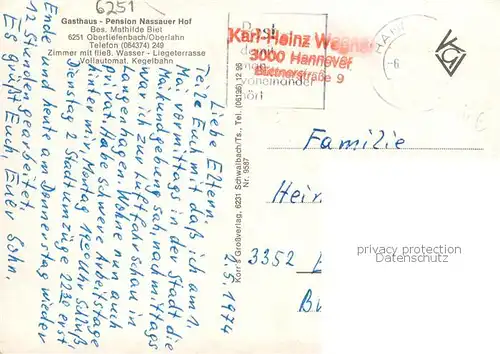 6251
Gasthaus - Pension Nassauer Hof
Bes. Mathilde Biet
6251 Obertiefenbach/Oberlahn
Telefon (064374) 249
Zimmer mit fließ. Wasser - Liegeterrasse
Vollautomat. Kegelbahn
Karl-Heinz Wegner
3000 Hannover
Büttnerstraße 9
damit
man
voneinander
hört
HANN
2.5.1974
Liebe Eltern,
Teile Euch mit daß ich am 1.
Mai vormittags in der Stadt die
Maikundgebung sah, nachmittags
war ich zur Luftfahrschau in
Langenhagen. Wohne nun auch
privat. Habe schwere Arbeitstage
hinter mir, Montag 1900 Uhr Schluß
Dienstag 2 Stadtumzüge 2230 erst
Ende und heute am Donnerstag wieder
12 Stunden gearbeitet.
Es grüßt Euch, Euer Sohn.
Korr's Großverlag, 6231 Schwalbach/Ts., Tel. (06196) 12 95
Nr. 9587
Familie
Hei
3352
privacy protection
Datenschutz